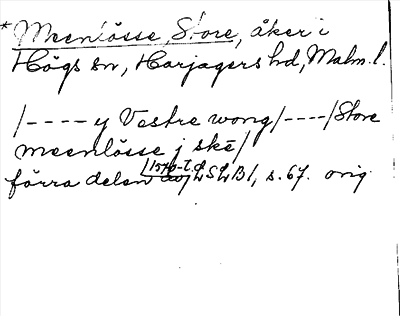 *Meenlösse, Store, åker i
Högs sn, Harjagers hd, Malm. l.
/---- y Vestre wong/----/Store
meenlösse j skē/
förra delen av 1570-t. LSLB 1, s. 67. orig.